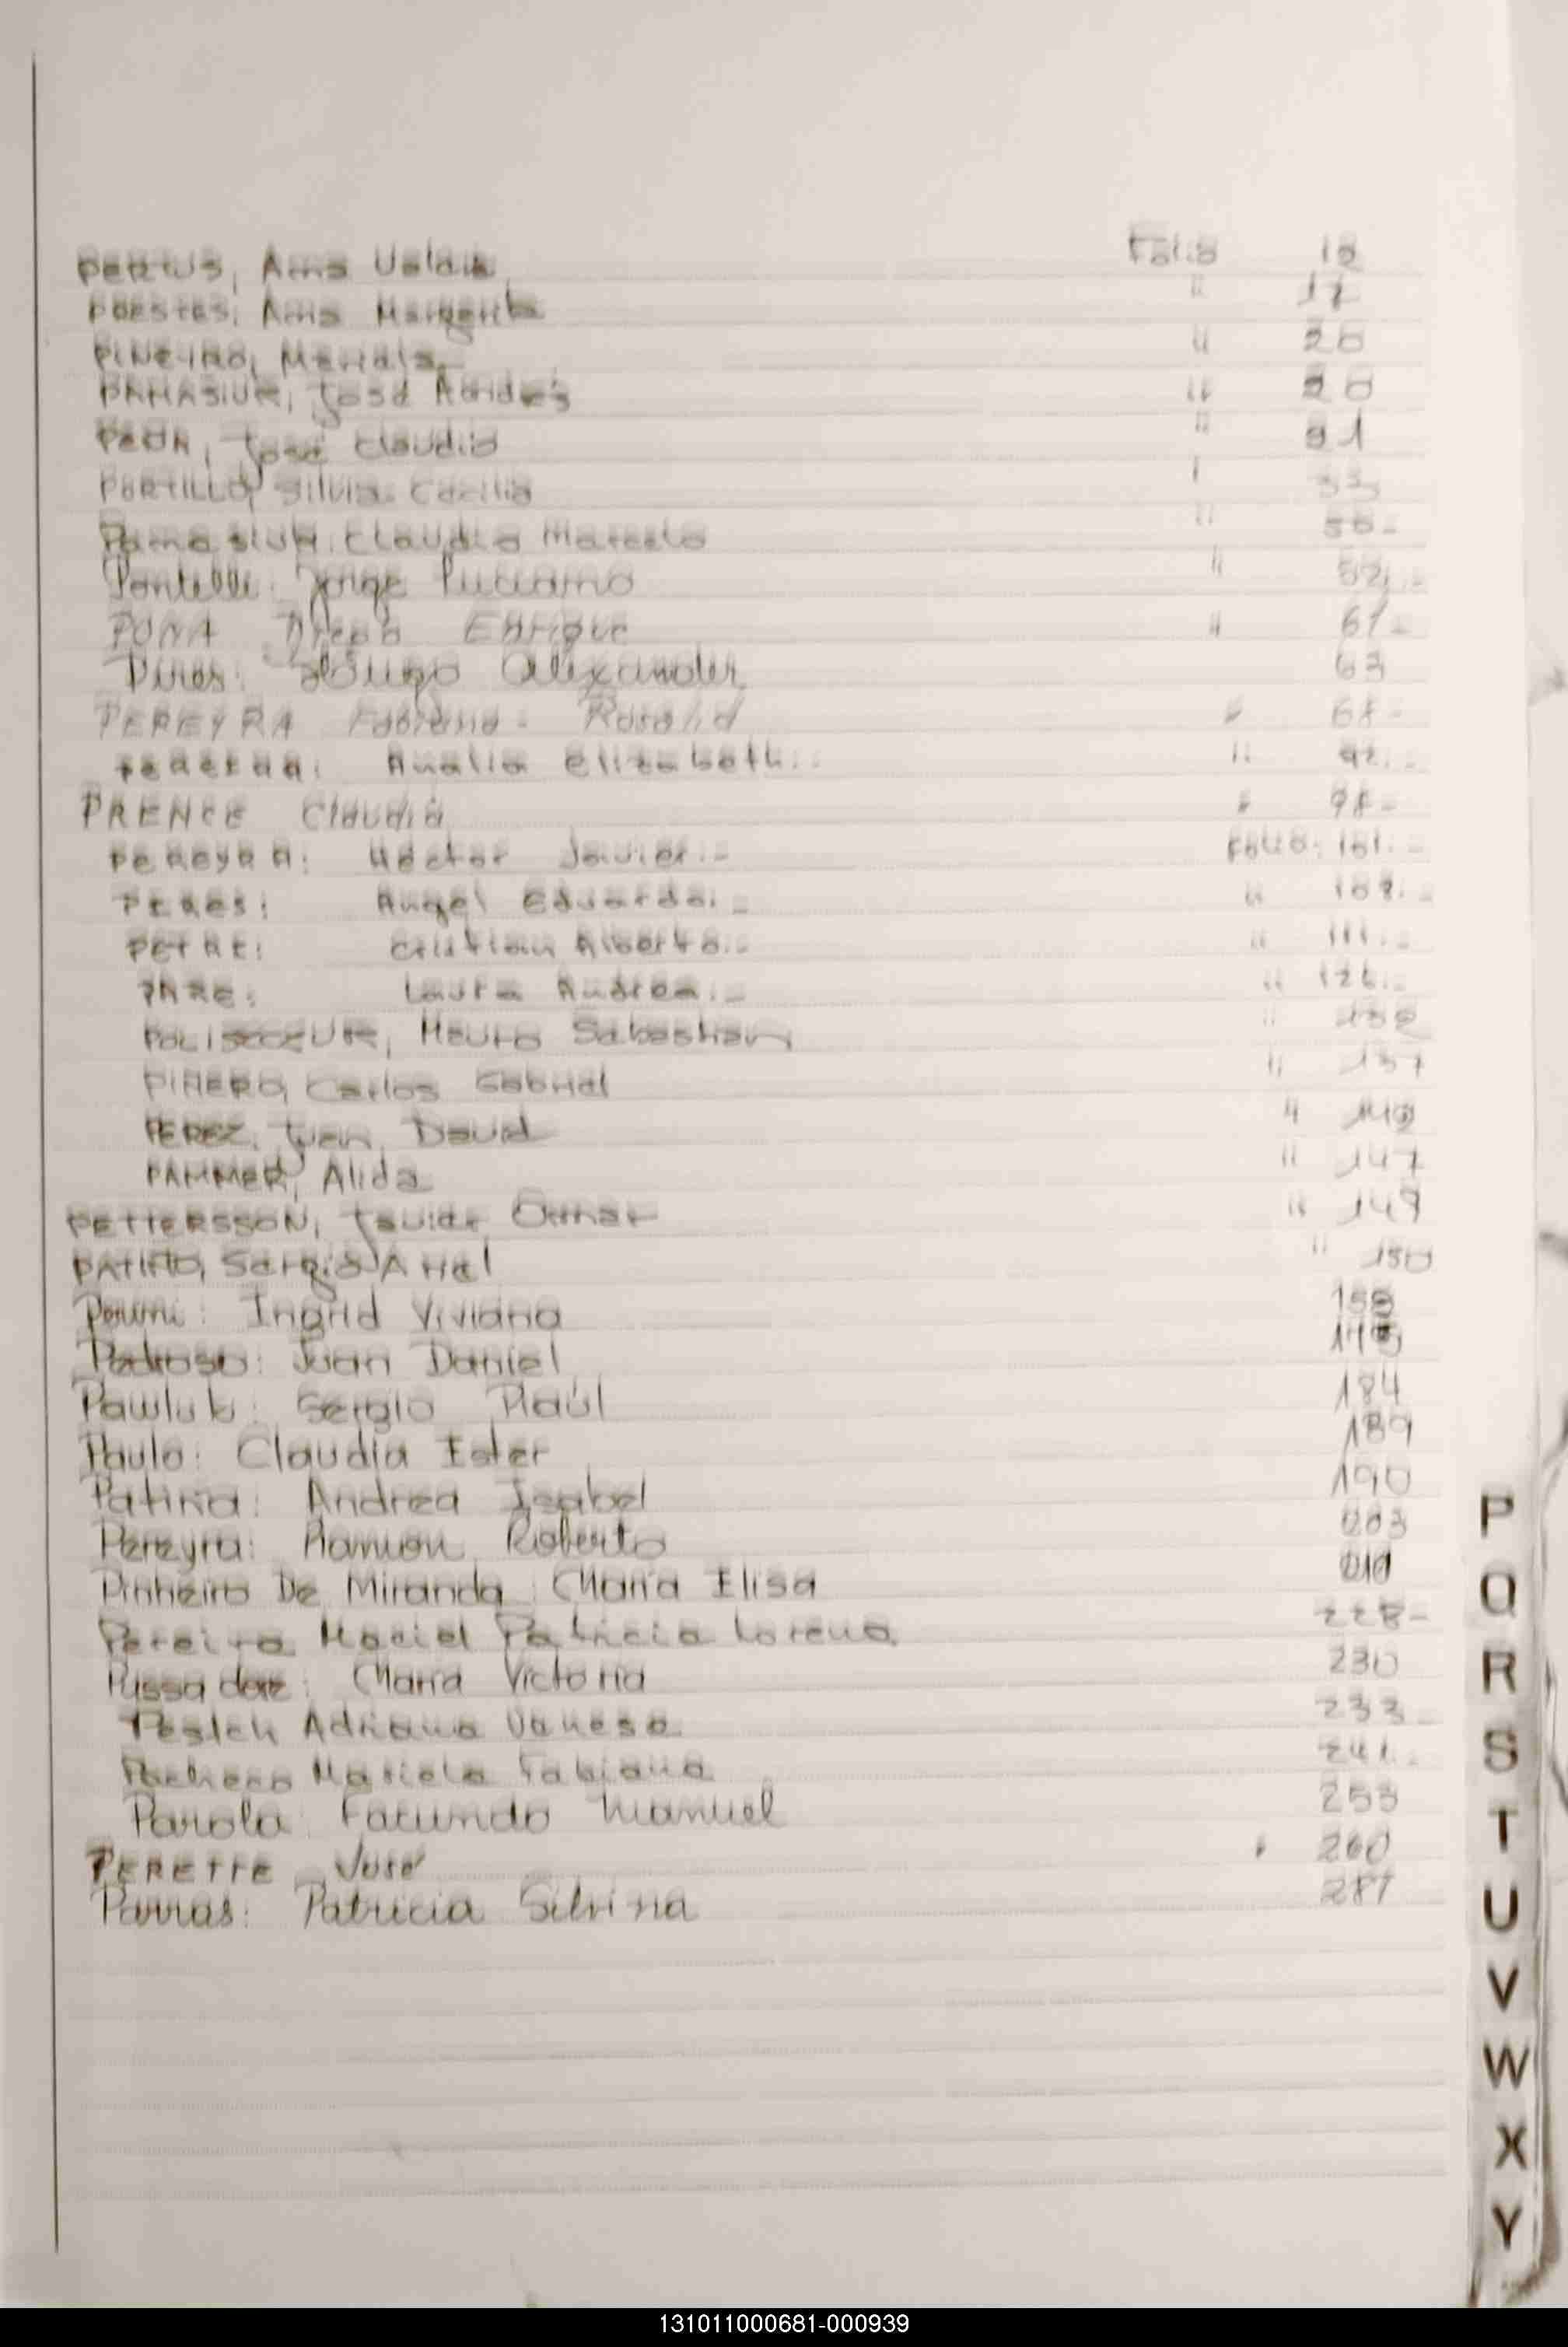 Ana Folio 12
Ana Margarita " 17
PIÑEIRO, " 20
José " 20
José Claudio " 31
PORTILLO, Silvia Cecilia 33
Claudio Marcelo "
Pontelli: Jorge Luciano " 52.-
Enrique " 61-
Pires: Hugo Alexander 63
PEREYRA Fabiana - Rosalid " 68-
Analia Elizabeth.- " 92.-
PRENCE Claudia " 98-
PEREYRA: Héctor Javier.- Folio: 101.-
PERES: Angel Eduardo.- " 108.-
Cristian Alberto.- " 111.-
Laura Andrea.- " 126.-
Mauro Sebastian " 132
PIÑERO, Carlos Gabriel " 137
PEREZ, Juan David " 142
PAMMER, Alida " 147
PETTERSSON, Javier Omar " 149
PATIÑO, Sergio Ariel " 150
Ingrid Viviana 158
Pedroso: Juan Daniel
Pawluk: Sergio Raúl 184
Paulo: Claudia Ester 189
Patiña: Andrea Isabel 190
Pereyra: Ramon Roberto 203
Pinheiro De Miranda: María Elisa 210
Pereira Maciel Patricia Lorena. 228-
María Victoria 230
Adriana Vanesa 233-
Pacheco Mariela Fabiana 241.-
Parola: Facundo Manuel 253
PERETTE José " 260
Parras: Patricia Silvina 281
P
Q
R
S
T
U
V
W
X
Y
131011000681-000939